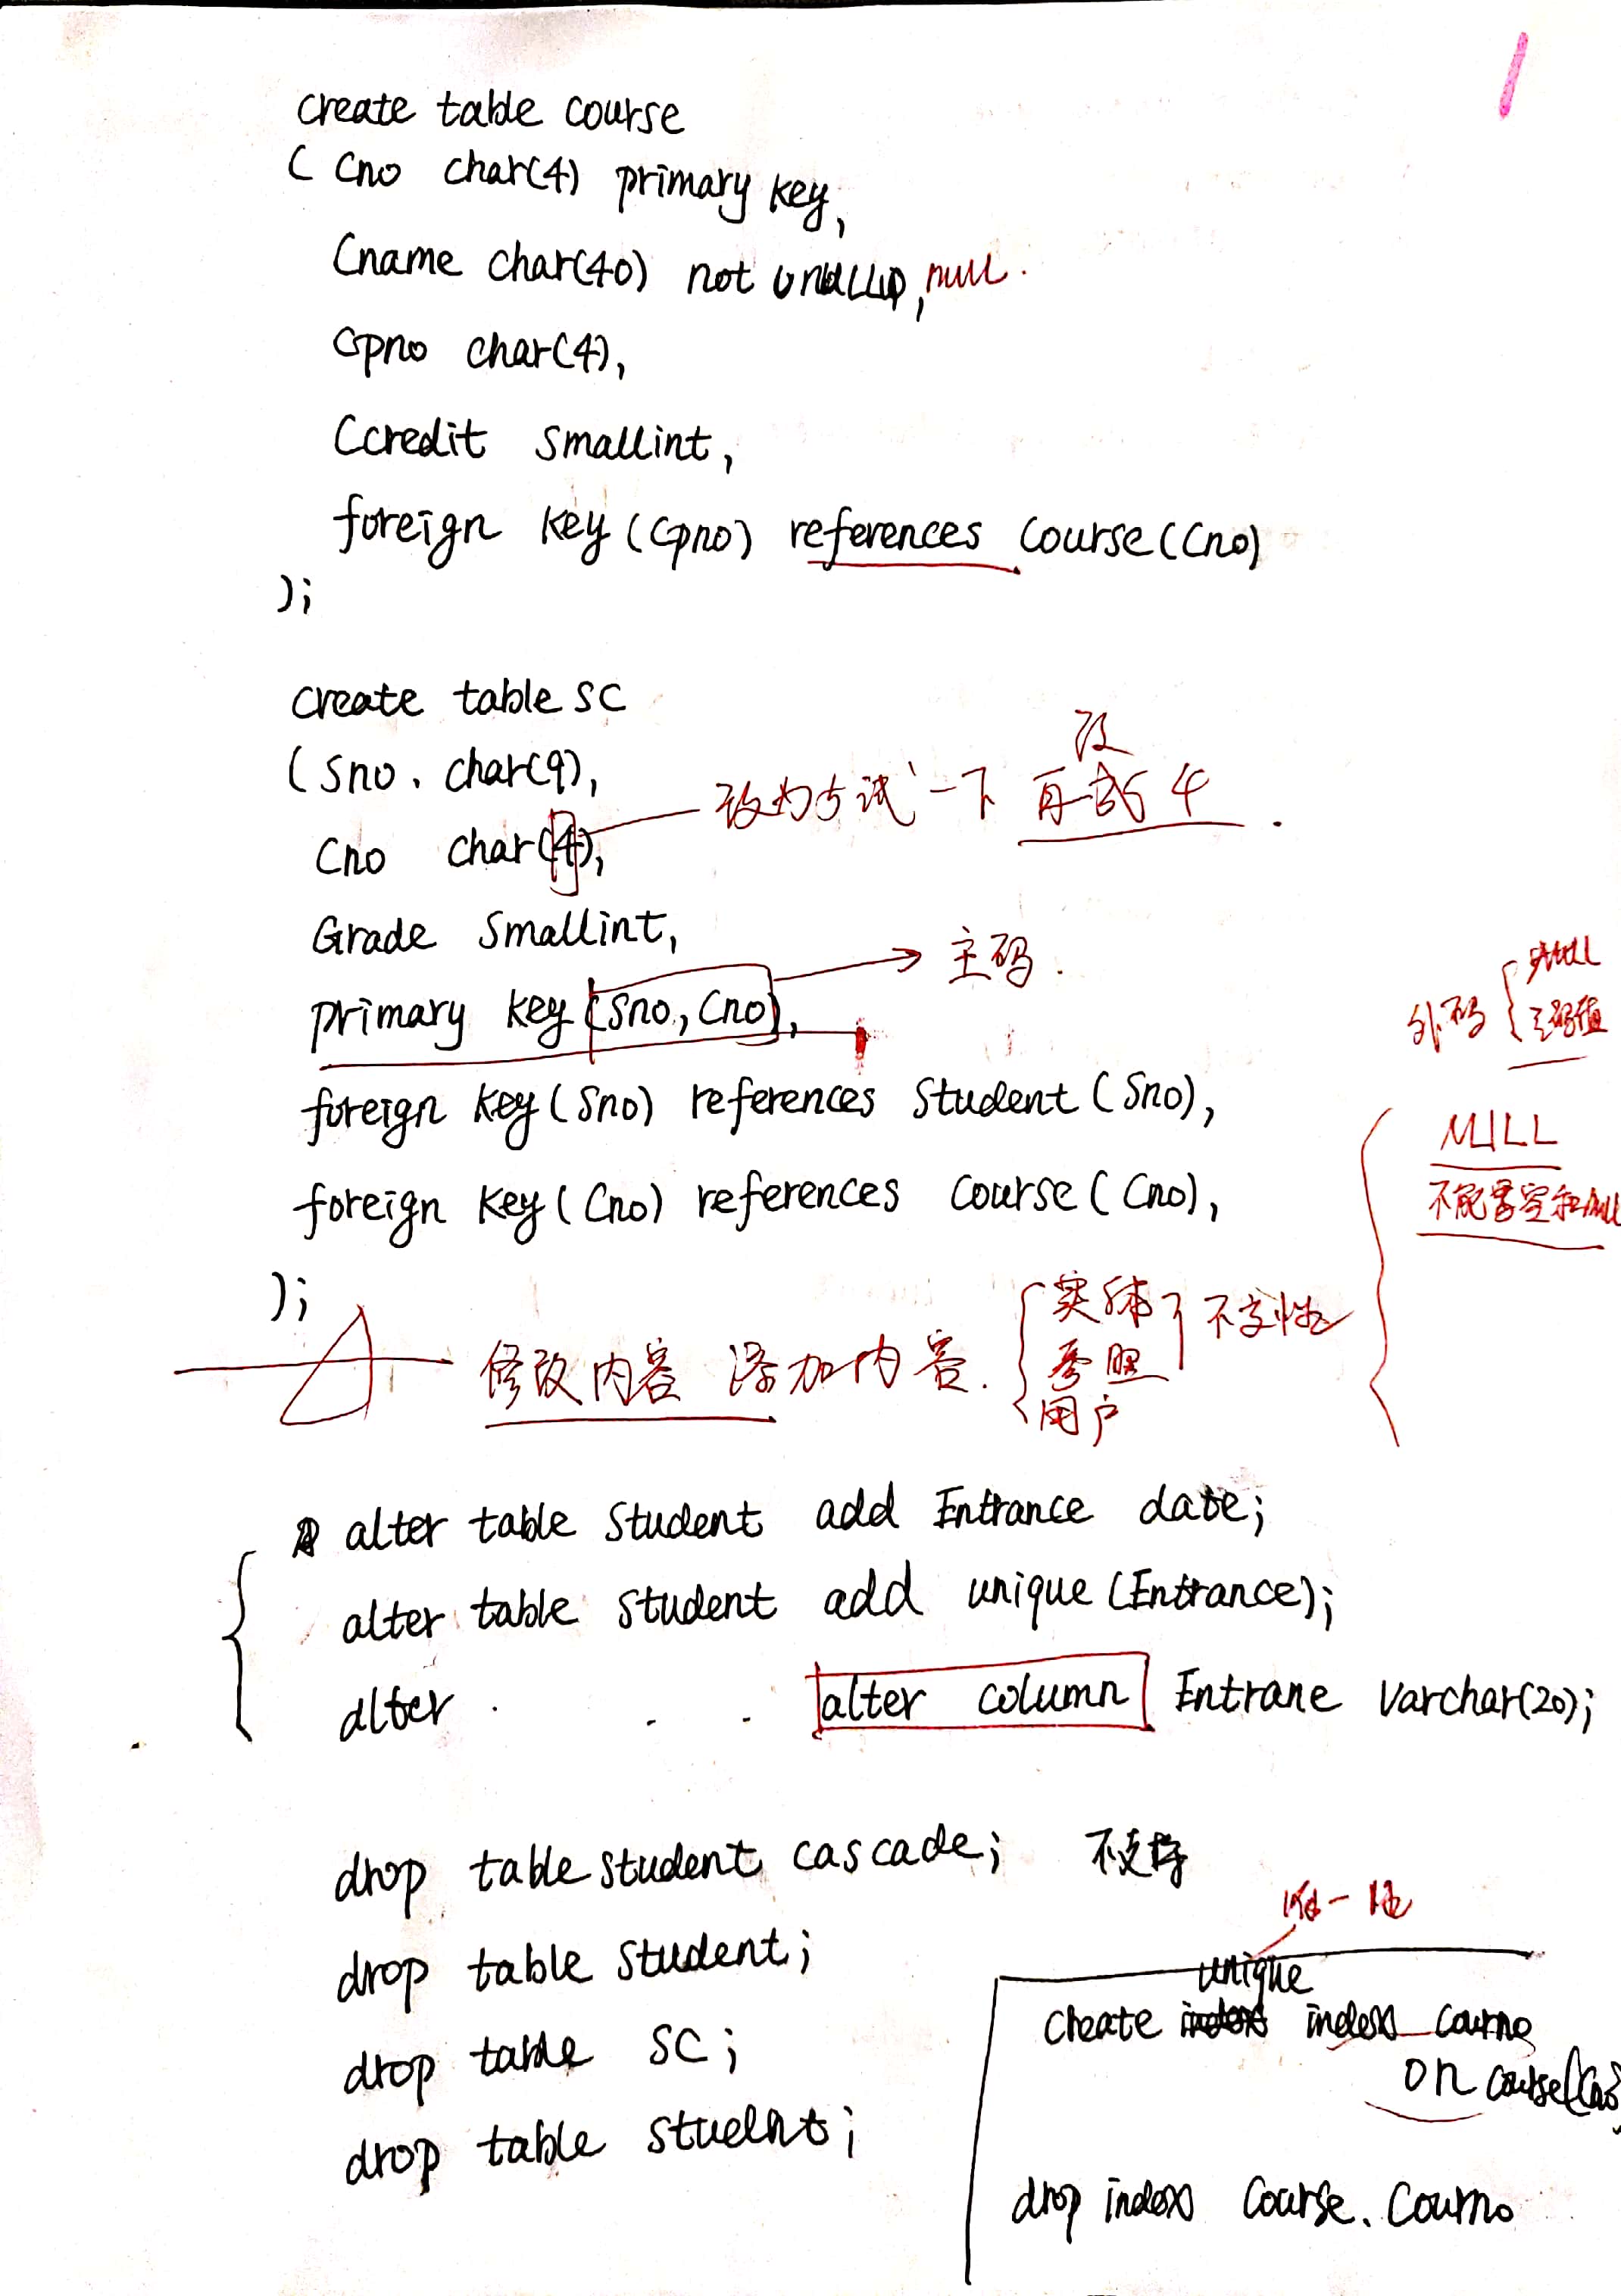 create table course
( Cno char(4) primary key,
Cname char(40) not null.
Cpno char(4),
Ccredit smallint,
foreign key (Cpno) references course(Cno)
);
create table SC
( Sno. char(9),
Cno char(4),
改为5试一下 再改 4.
Grade smallint,
primary key (Sno, Cno),
主码.
外码 { NULL
主码值
foreign key (Sno) references Student (Sno),
NULL
foreign key (Cno) references course (Cno),
不能 空和null
);
修改内容 添加内容.
{ 实体
参照
用户
alter table Student add Entrance date;
alter table student add unique (Entrance);
alter . . . alter column Entrane varchar(20);
drop table student cascade; 不支持
drop table student;
drop table SC;
drop table
唯一性
unique
create index courno
on course(
drop index Course. Courno